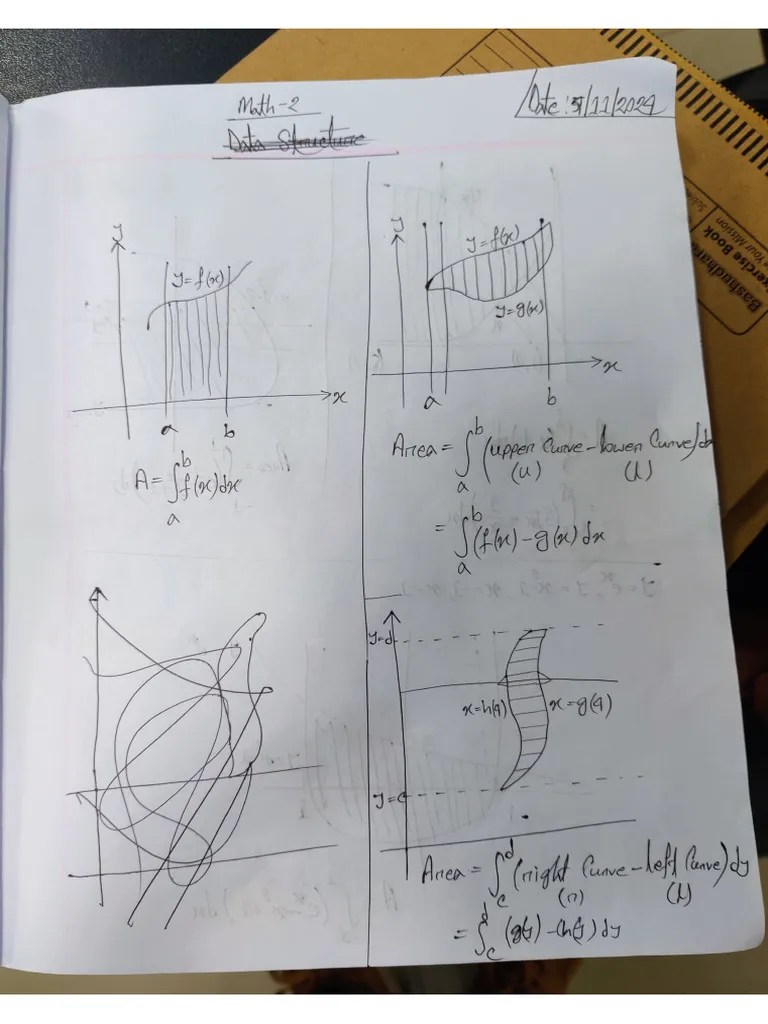 Math-2
Date: 5/11/2024
Data Structure
y
y = f(x)
x
a
b
A = ∫_a^b f(x) dx
y
y = f(x)
y = g(x)
x
a
b
Area = ∫_a^b (upper Curve - lower Curve) dx
(u) (l)
= ∫_a^b (f(x) - g(x) dx
y = d
x = h(y)
x = g(y)
y = c
Area = ∫_c^d (right Curve - left Curve) dy
(r) (l)
= ∫_c^d (g(y) - h(y) dy
Exercise Book
Bashundhara